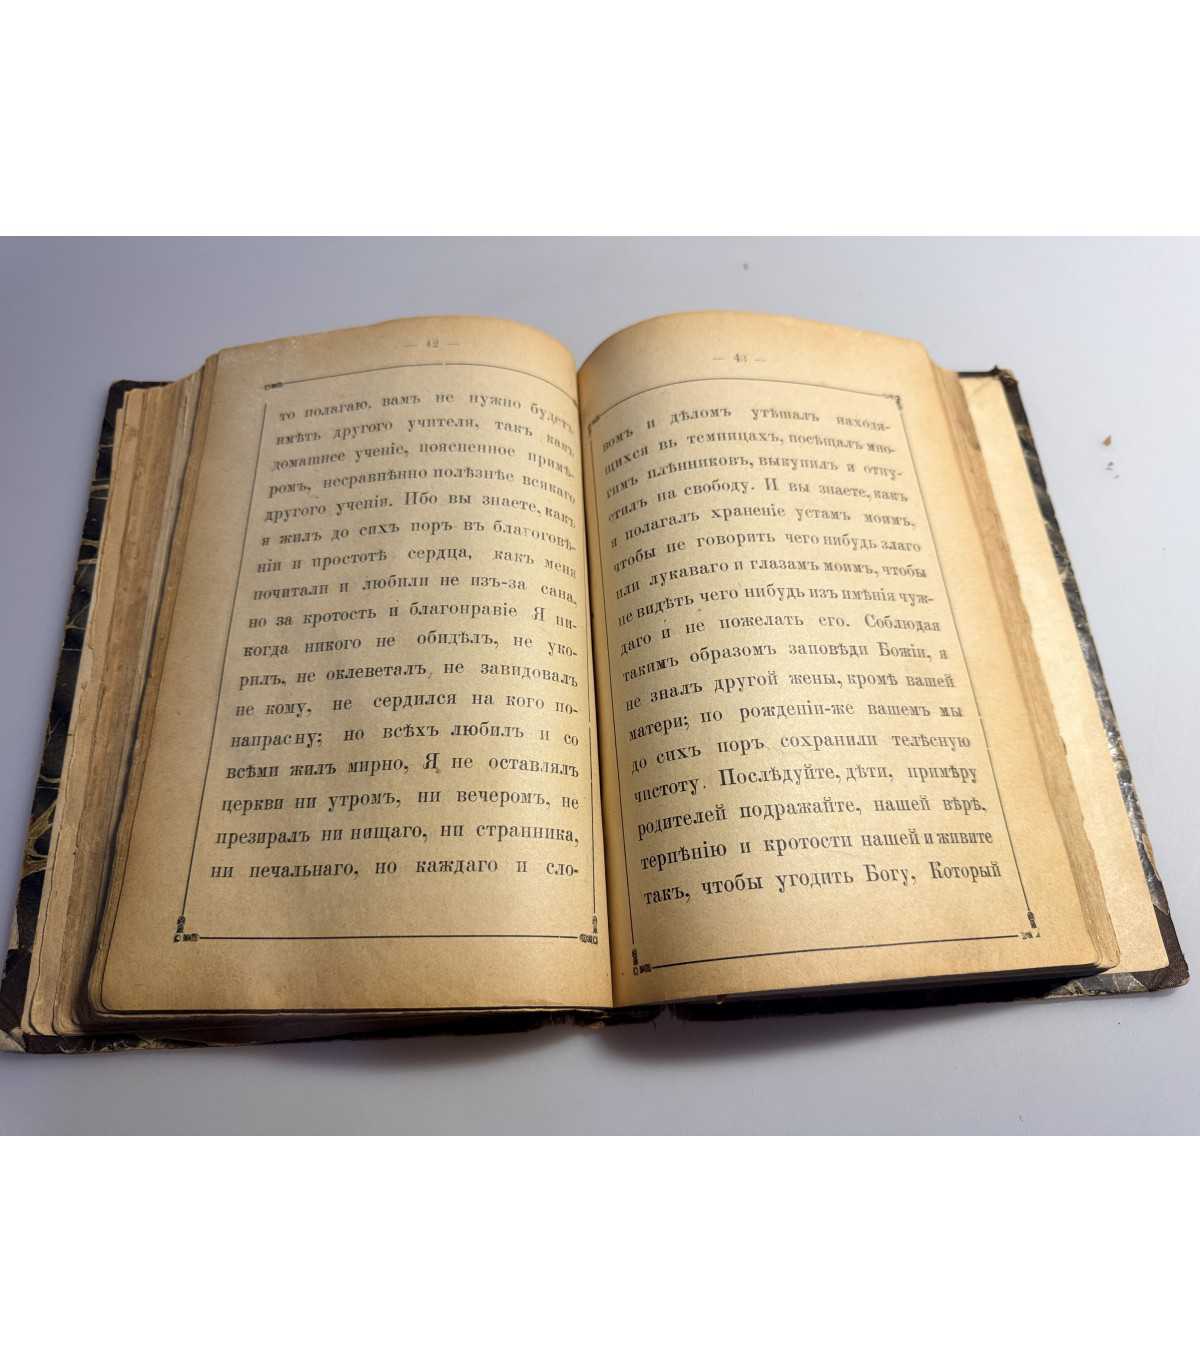 — 42 —
то полагаю, вамъ не нужно будетъ
имѣть другого учителя, такъ какъ
домашнее ученіе, поясненное примѣ-
ромъ, несравненно полѣзнѣе всякаго
другого ученія. Ибо вы знаете, какъ
я жилъ до сихъ поръ въ благоговѣ-
ніи и простотѣ сердца, какъ меня
почитали и любили не изъ-за сана,
но за кротость и благонравіе Я ни-
когда никого не обидѣлъ, не уко-
рилъ, не оклеветалъ, не завидовалъ
не кому, не сердился на кого по-
напрасну; но всѣхъ любилъ и со
всѣми жилъ мирно, Я не оставлялъ
церкви ни утромъ, ни вечеромъ, не
презиралъ ни нищаго, ни странника,
ни печальнаго, но каждаго и сло-
— 43 —
вомъ и дѣломъ утѣшалъ находя-
щихся въ темницахъ, посѣщалъ мно-
гимъ плѣнниковъ, выкупилъ и отпу-
стилъ на свободу. И вы знаете, какъ
я полагалъ храненіе устамъ моимъ,
чтобы не говорить чего нибудь злаго
или лукаваго и глазамъ моимъ, чтобы
не видѣть чего нибудь изъ имѣнія чуж-
даго и не пожелать его. Соблюдая
такимъ образомъ заповѣди Божіи, я
не зналъ другой жены, кромѣ вашей
матери; по рожденіи-же вашемъ мы
до сихъ поръ сохранили телѣсную
чистоту. Послѣдуйте, дѣти, примѣру
родителей подражайте, нашей вѣрѣ,
терпѣнію и кротости нашей и живите
такъ, чтобы угодить Богу, Который